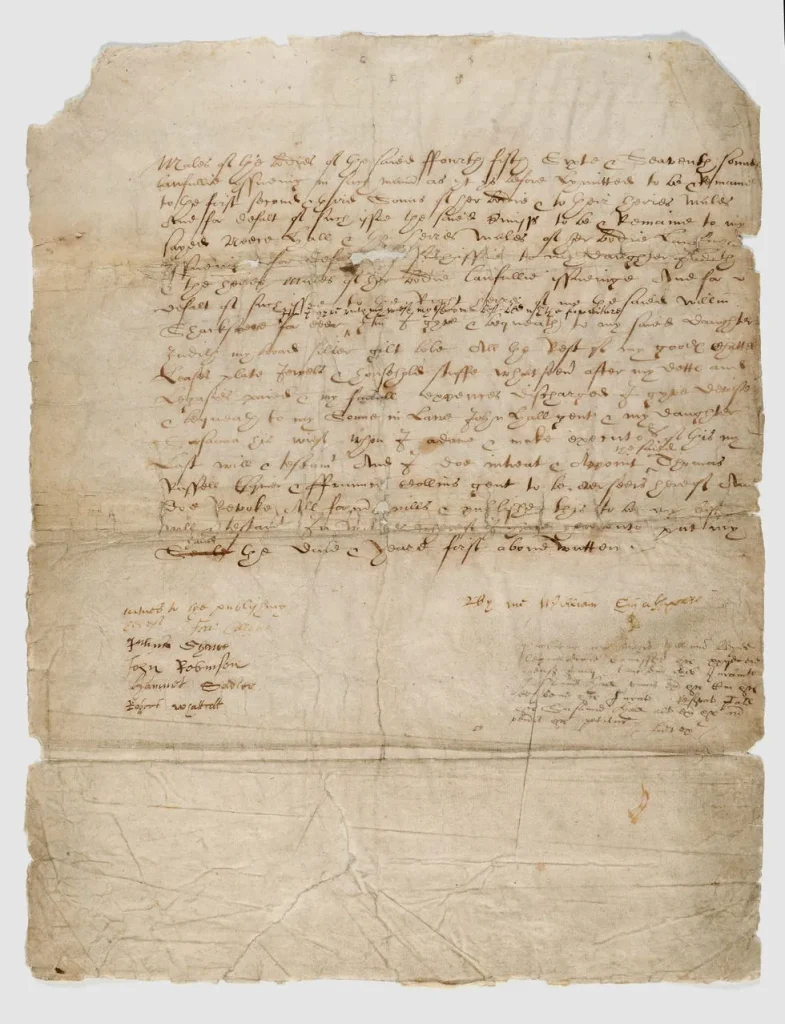 Males of the bodies of the saied ffourth fifth Sixte & Seaventh sonnes
lawfullie yssueing in such manner as yt ys before Lymitted to be & Remaine
to the first second & third Sonns of her bodie & to their heires Males
And for defalt of such issue the saied premisses to be & Remaine to my
sayed Neece Hall & the heires Males of her bodie Lawfullie
yssueing for defalt of such issue to my daughter Judith
& the heires Males of her bodie lawfullie yssueinge And for
defalt of such issue to the Right heires of me the saied Willm
Itm I gyve unto my wief my second best bed with the furniture
Shackspere for ever Itm I gyve & bequeath to my saied daughter
Judith my broad silver gilt bole All the Rest of my goodes Chattels
Leases plate Jewels & household stuffe whatsoever after my dettes and
Legasies paied & my funerall expences discharged I gyve devise
& bequeath to my Sonne in Lawe John Hall gent & my daughter
Susanna his wief whom I ordaine & make executors of this my
the saied
Last will & testament And I doe intreat & Appoint Thomas
Russell Esquier & ffrauncis Collins gent to be overseers hereof And
doe Revoke All former wills & publishe this to be my last
will & testament In witnes whereof I have hereunto put my
hand
Seale the Daie & Yeare first above written
witnes to the publyshing
hereof Fra: Collyns
Julius Shawe
John Robinson
Hamnet Sadler
Robert Whattcott
By me William Shakspeare